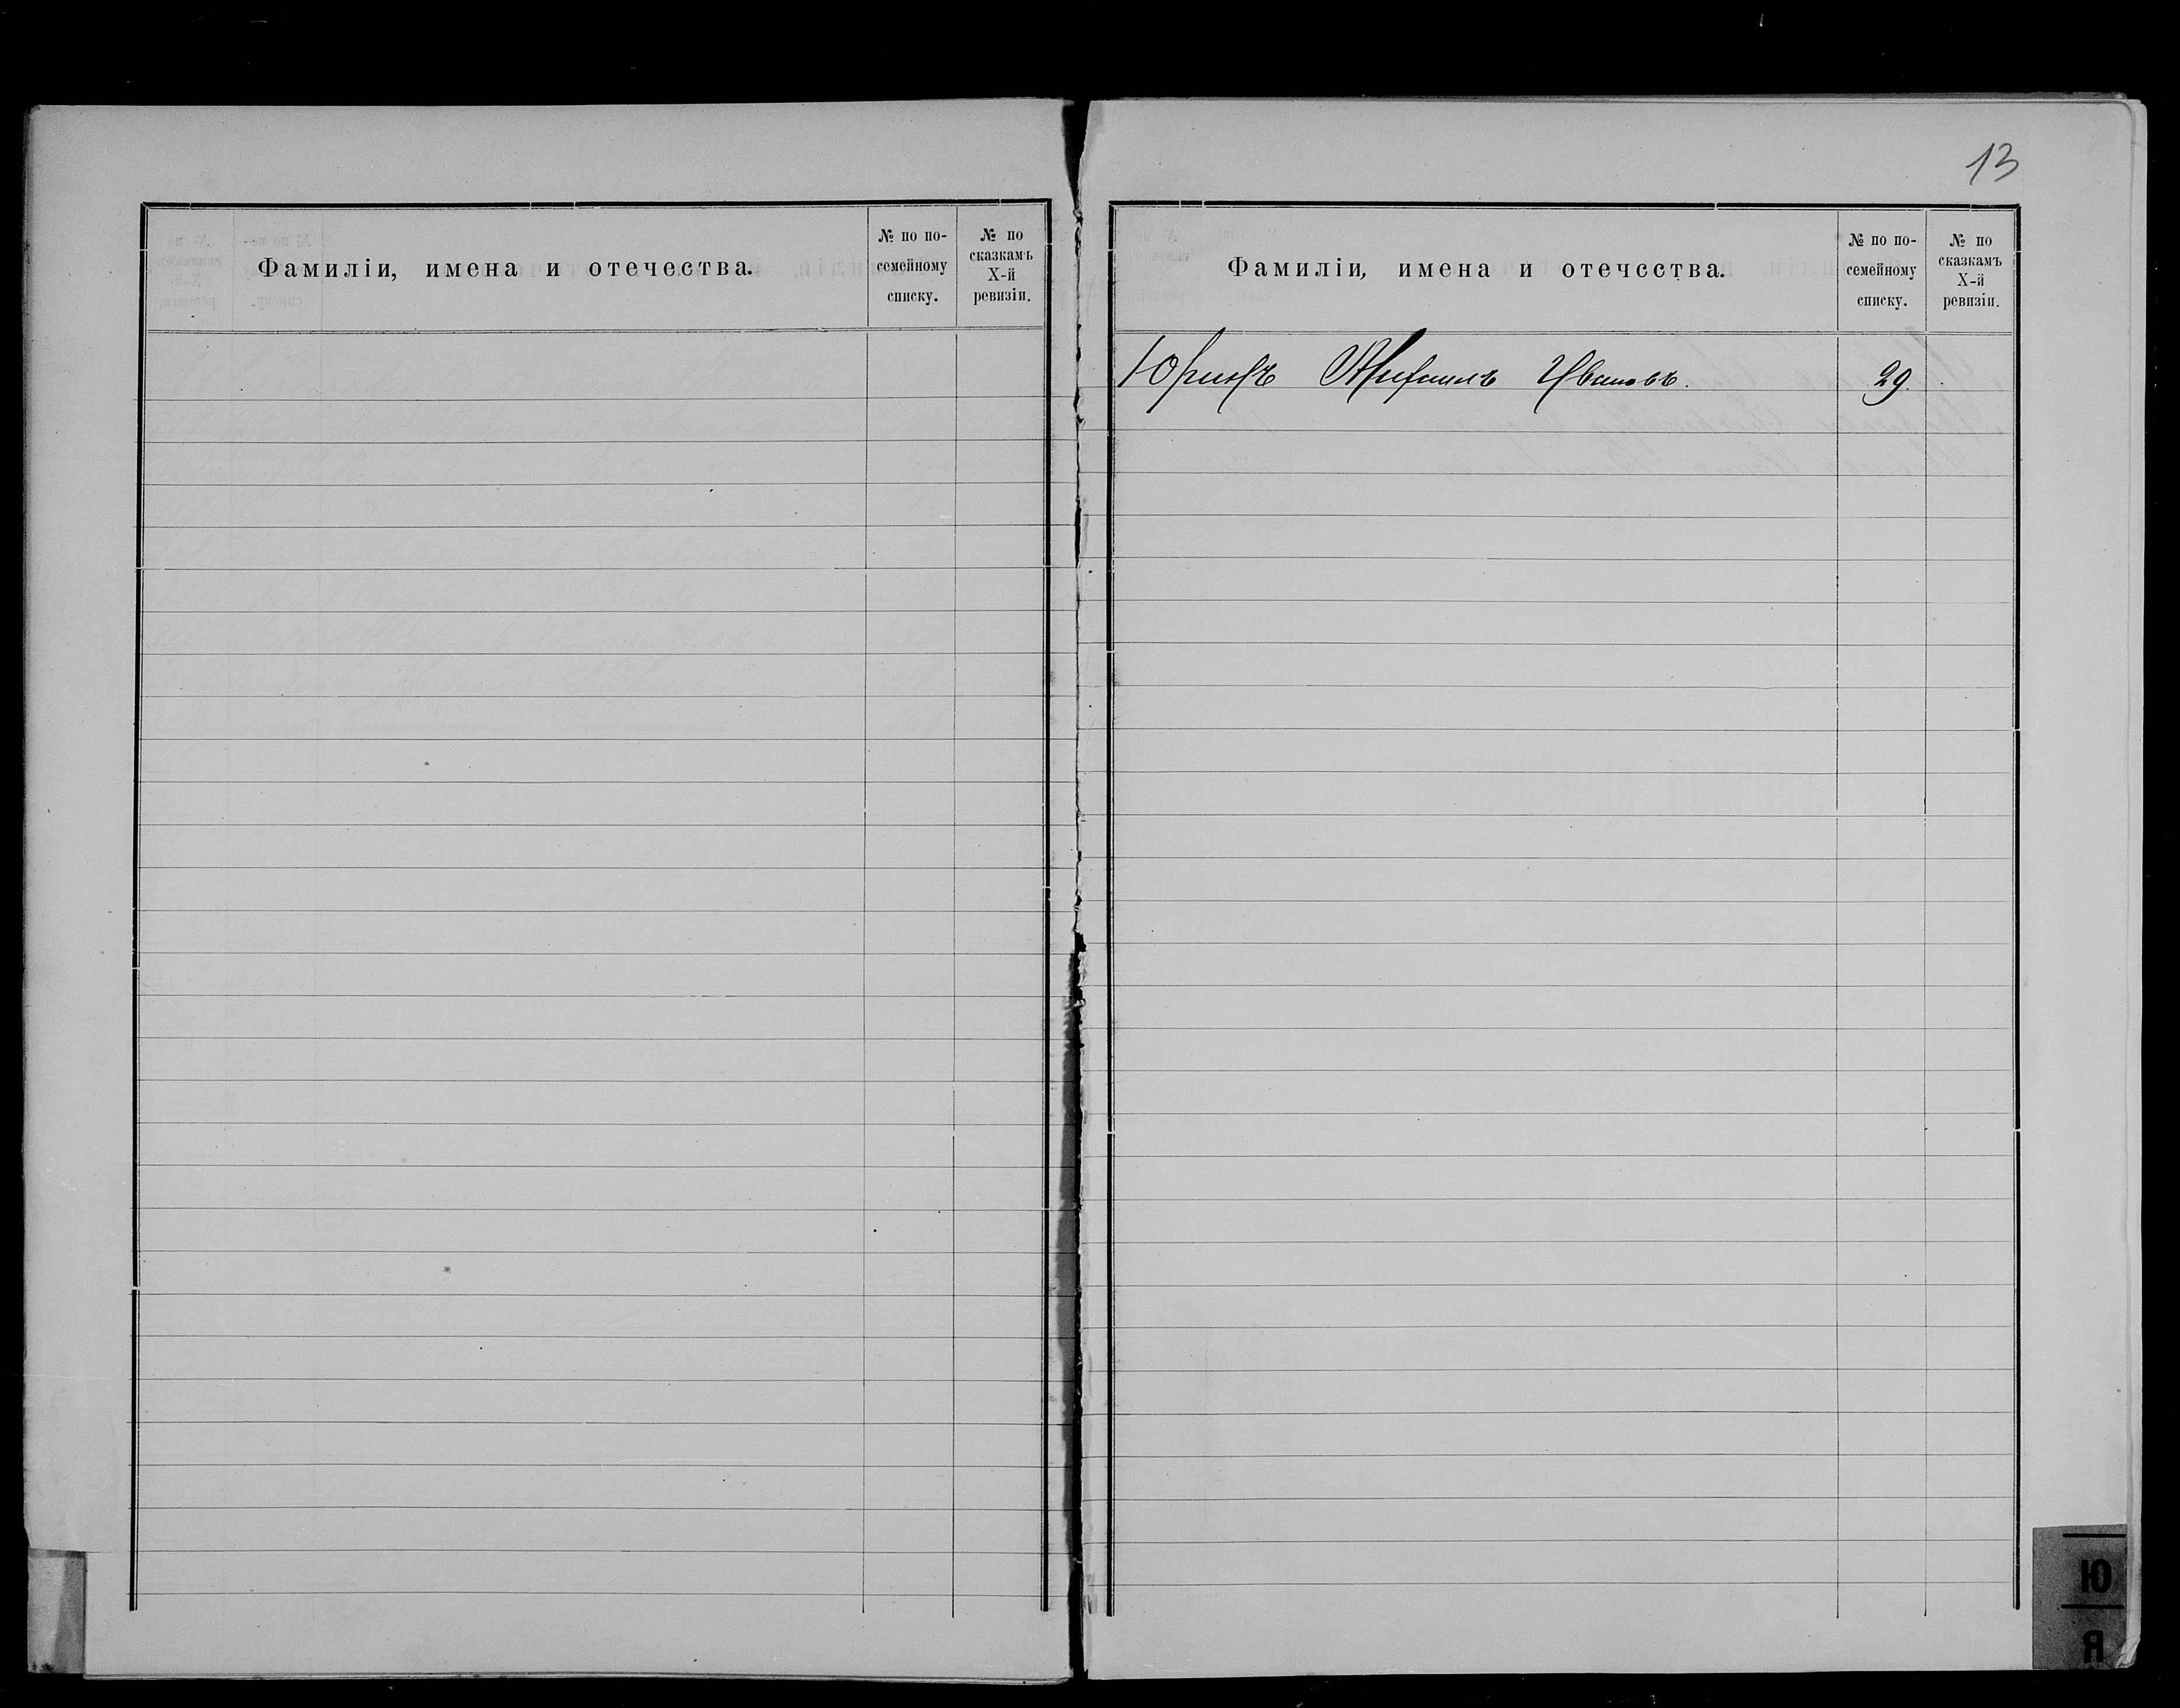 13
Фамиліи, имена и отечества.
№ по по-
семейному
списку.
№ по
сказкамъ
X-й
ревизіи.
Фамиліи, имена и отечества.
№ по по-
семейному
списку.
№ по
сказкамъ
X-й
ревизіи.
Михаилъ Ивановъ. 29.
Ю
Я